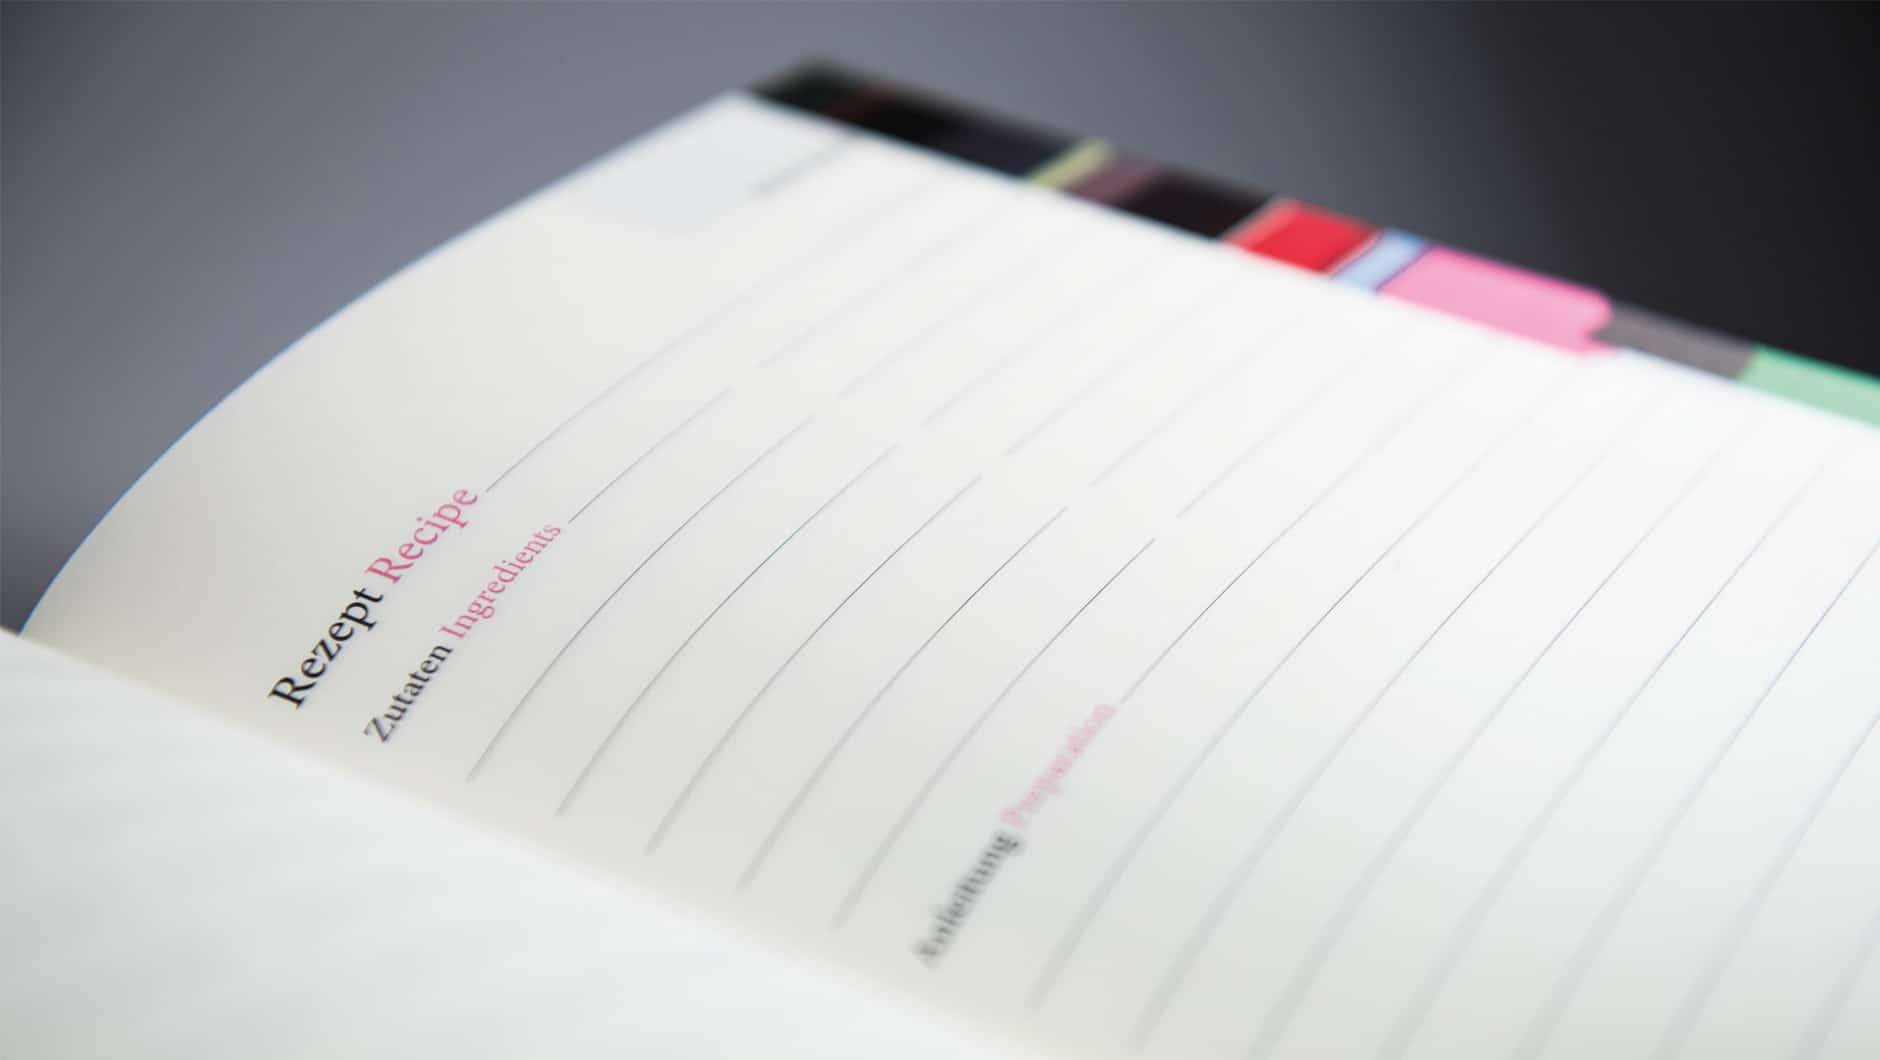 Rezept Recipe
Zutaten Ingredients
Anleitung Preparation